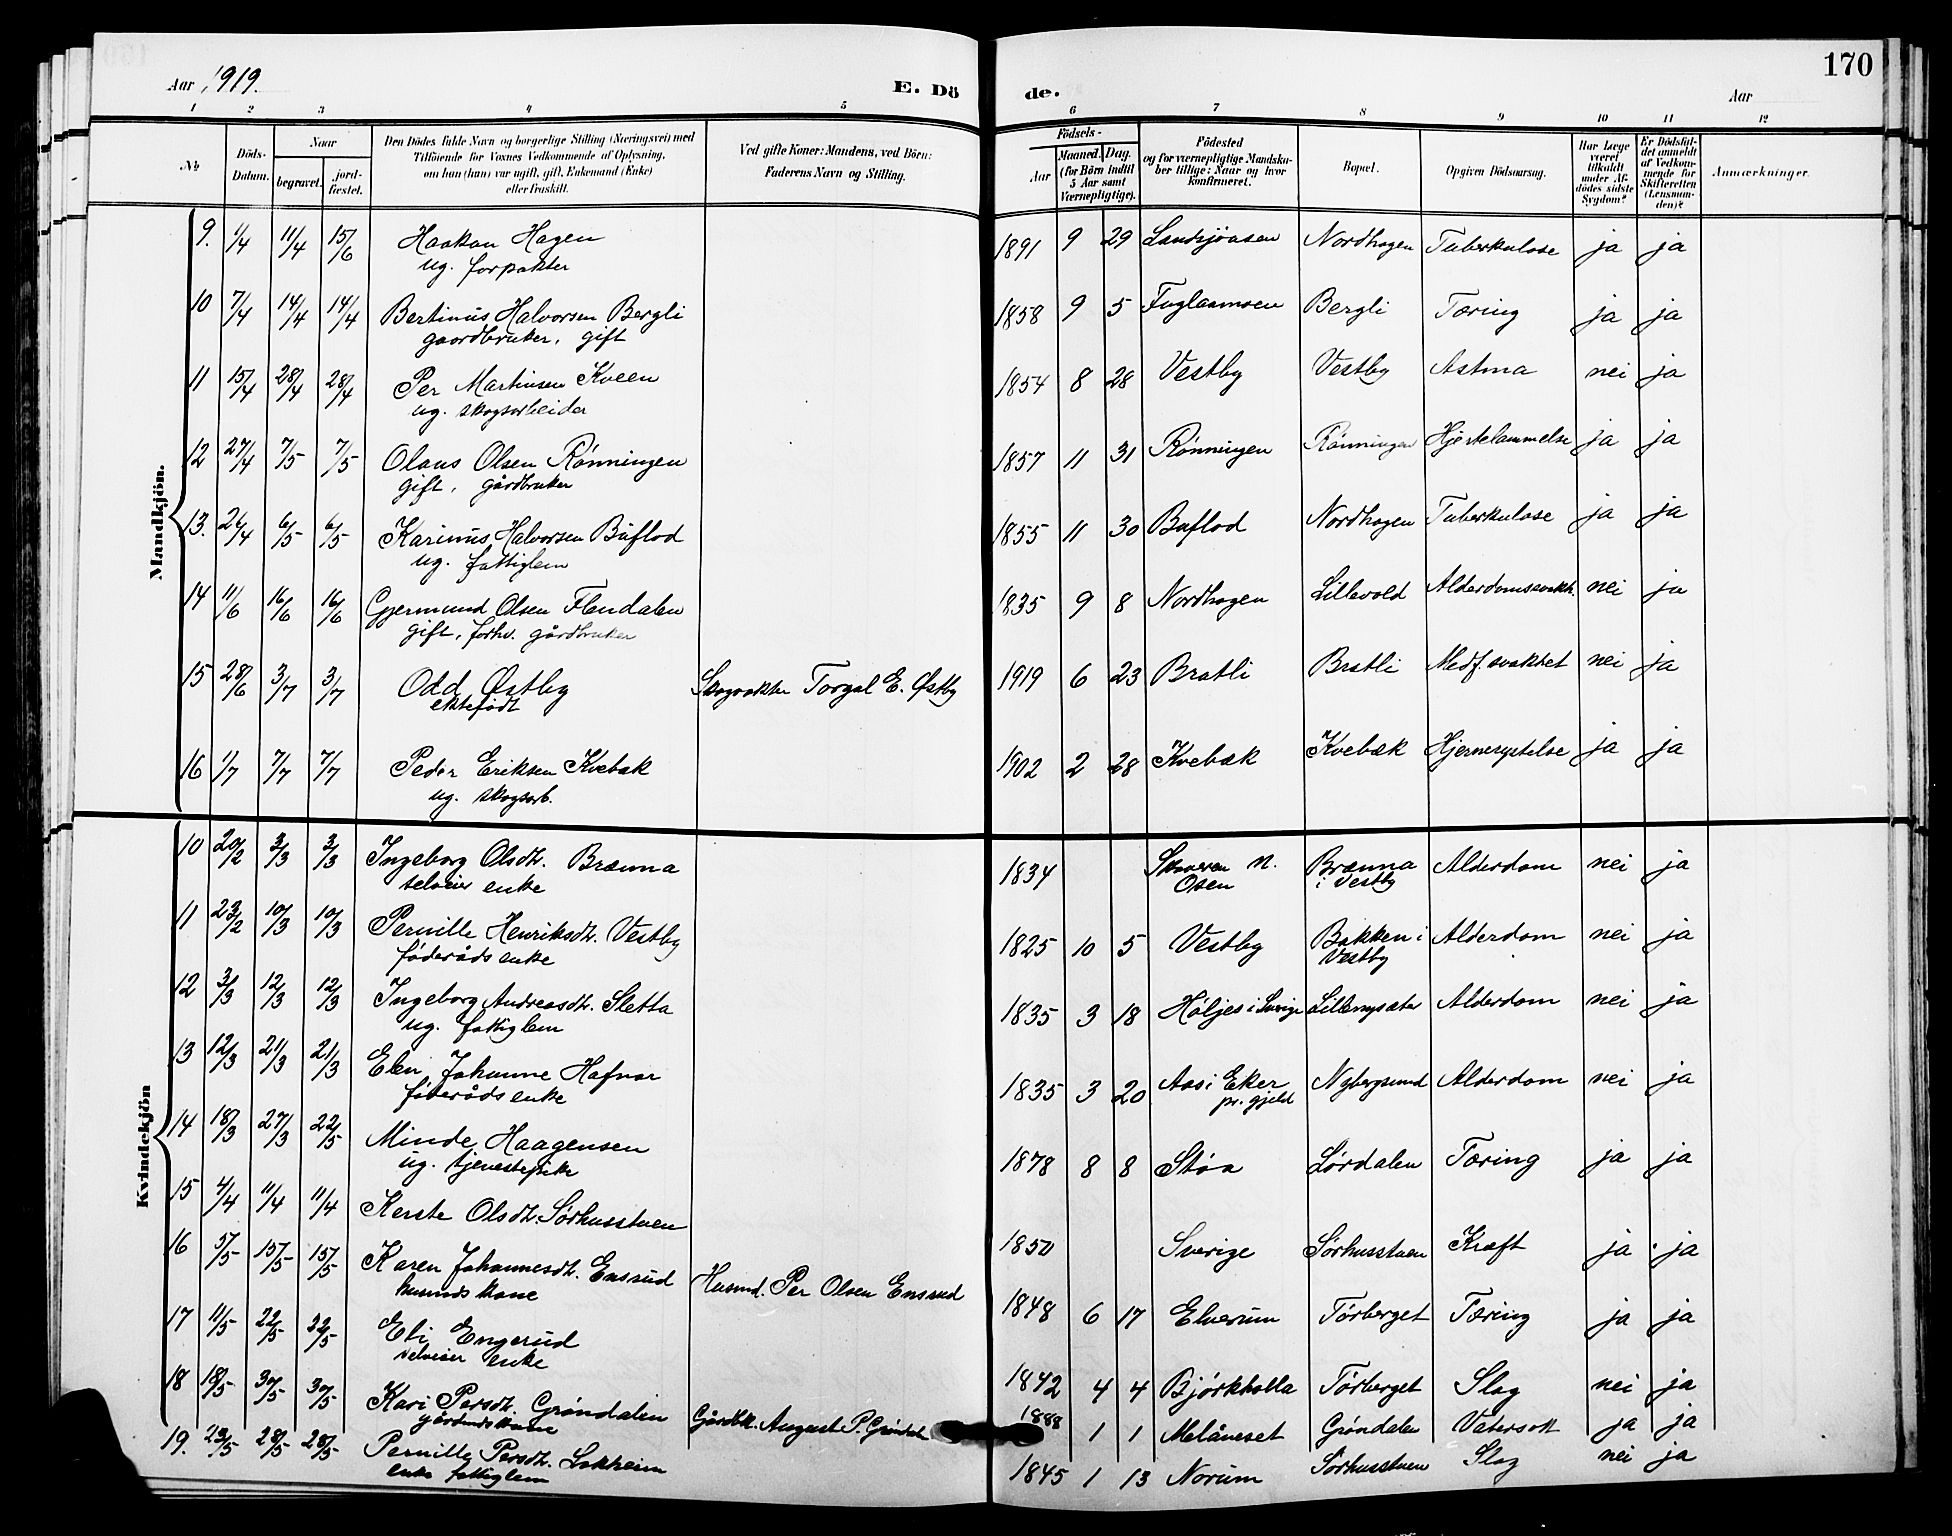 170
Aar 1919.
E. Dö de.
Aar
1 2 3 4 5 6 7 8 9 10 11 12
No
Döds-Datum.
Naar
begravet.
jordfæstet.
Den Dödes fulde Navn og borgerlige Stilling (Næringsvei) med
Tilföiende for Voxnes Vedkommende af Oplysning,
om han (hun) var ugift, gift, Enkemand (Enke)
eller fraskilt.
Ved gifte Koner: Mandens, ved Börn:
Faderens Navn og Stilling.
Födsels-
Aar
Maaned. Dag.
(for Börn indtil
5 Aar samt
Værnepligtige).
Födested
og for værnepligtige Mandskaber tillige: Naar og hvor
konfirmeret.
Bopæl.
Opgiven Dödsaarsag.
Har Læge
været
tilkaldt
under Afdödes sidste
Sygdom?
Er Dödsfaldet anmeldt
af Vedkommende for
Skifteretten
(Lensmanden)?
Anmærkninger.
Mandkjön.
9. 1/4 11/4 15/6 Haakon Hagen 1891 9 29 Landsjöaasen Nordhagen Tuberkulose ja ja
ug. forpakter
10 7/4 14/4 14/4 Bertinus Halvorsen Bergli 1858 9 5 Fuglaamoen Bergli Tæring ja ja
gaardbruker, gift
11 15/4 28/4 28/4 Per Martinsen Kveen 1854 8 28 Vestby Vestby Astma nei ja
ug. skogsarbeider
12 27/4 7/5 7/5 Olaus Olsen Rønningen 1857 11 31 Rønningen Rønningen Hjertelammelse ja ja
gift, gårdbruker
13. 26/4 6/5 6/5 Karinus Halvorsen Buflod 1855 11 30 Buflod Nordhagen Tuberkulose ja ja
ug. fattiglem
14 11/6 16/6 16/6 Gjermund Olsen Flendalen 1835 9 8 Nordhagen Lillevold Alderdomssvakh. nei ja
gift, forhv. gårdbruker
15 28/6 3/7 3/7 Odd Østby Skogvakter Torgal E. Østby 1919 6 23 Bratli Bratli Medf. svakhet nei ja
ektefødt
16 1/7 7/7 7/7 Peder Eriksen Kvebæk 1902 2 28 Kvebæk Kvebæk Hjernerystelse ja ja
ug. skogsarb.
Kvindekjön
10 20/2 3/3 3/3 Ingeborg Olsdt. Brænna 1834 Skaaren N. Brænna Alderdom nei ja
selveier enke Osen i Vestby
11 23/2 10/3 10/3 Pernille Henriksdt. Vestby 1825 10 5 Vestby Bakken i Alderdom nei ja
føderåds enke Vestby
12 3/3 12/3 12/3 Ingeborg Andreasdt. Sletta 1835 3 18 Höljes i Sverige Lillenysæter Alderdom nei ja
ug. fattiglem
13 12/3 21/3 21/3 Elen Johanne Hafnor 1835 3 20 Aas i Eker Nybergsund Alderdom nei ja
føderåds enke pr. gjeld
14 18/3 27/3 22/5 Minde Haagensen 1878 8 8 Støa Lørdalen Tæring ja ja
ug. tjenestepike
15 4/4 11/4 11/4 Kerste Olsdt. Sørhusstuen 1850 Sverige Sørhusstuen Kræft ja ja
16 5/5 15/5 15/5 Karen Johannesdt. Ensrud Husmd. Per Olsen Ensrud 1848 6 17 Elverum Tørberget Tæring ja ja
husmds kone
17 11/5 22/5 22/5 Eli Engerud 1842 4 4 Bjørkholla Tørberget Slag nei ja
selveier enke
18 18/5 30/5 30/5 Kari Persdt. Grøndalen Gårdbr. August P. Grøndal 1888 1 1 Melåneset Grøndalen Vatersott ja ja
gårdmds kone
19. 23/5 28/5 28/5 Pernille Persdt. Løkheim 1845 1 13 Norum Sørhusstuen Slag nei ja
enke fattiglem